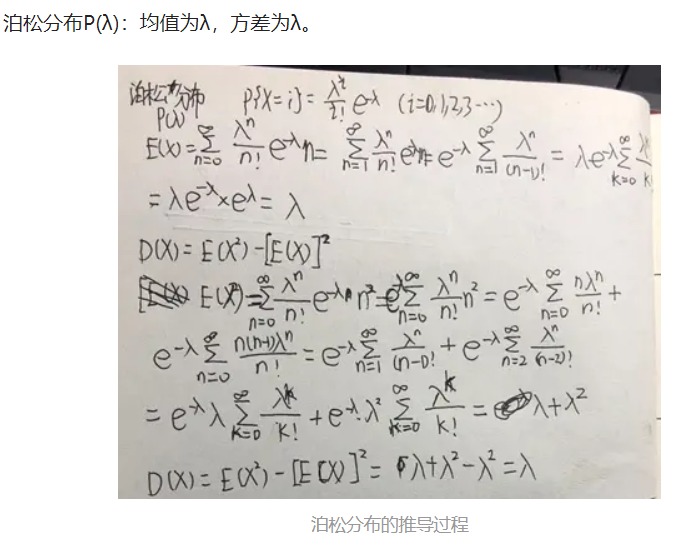 泊松分布P(λ)：均值为λ，方差为λ。
泊松分布 P{X=i}= λ^i/i! e^-λ (i=0,1,2,3…)
P(λ)
E(X)=∑_{n=0}^∞ λ^n/n! e^-λ n= ∑_{n=1}^∞ λ^n/n! e^-λ n= e^-λ ∑_{n=1}^∞ λ^n/(n-1)! = λe^-λ ∑_{k=0}^∞ λ^k/k!
=λe^-λ×e^λ= λ
D(X)=E(X²)-[E(X)]²
E(X²)=∑_{n=0}^∞ λ^n/n! e^-λ n²=e^-λ ∑_{n=0}^∞ λ^n/n! n² = e^-λ ∑_{n=0}^∞ nλ^n/n! +
e^-λ ∑_{n=0}^∞ n(n-1)λ^n/n! = e^-λ ∑_{n=1}^∞ λ^n/(n-1)! + e^-λ ∑_{n=2}^∞ λ^n/(n-2)!
= e^-λ λ ∑_{k=0}^∞ λ^k/k! + e^-λ·λ² ∑_{k=0}^∞ λ^k/k! = λ+λ²
D(X)=E(X²)-[E(X)]²= λ+λ²-λ²=λ
泊松分布的推导过程